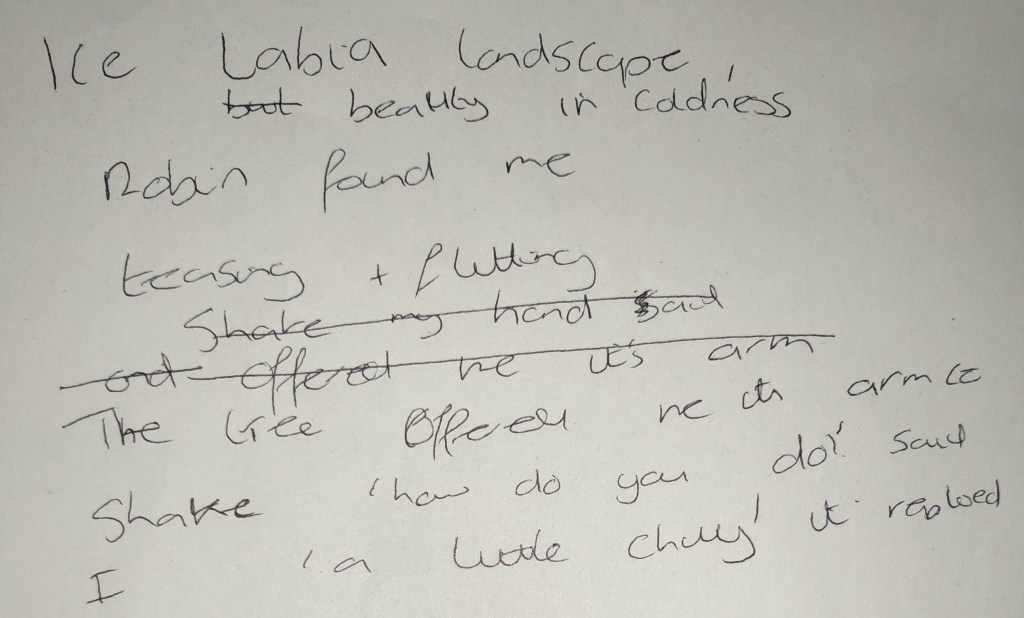 Ice Labia landscape,
but beauty in coldness
Robin found me
teasing + flutting
Shake my hand said
and offered me it's arm
The tree offered me its arm to
Shake 'how do you do?' said
I 'a little chilly' it replied